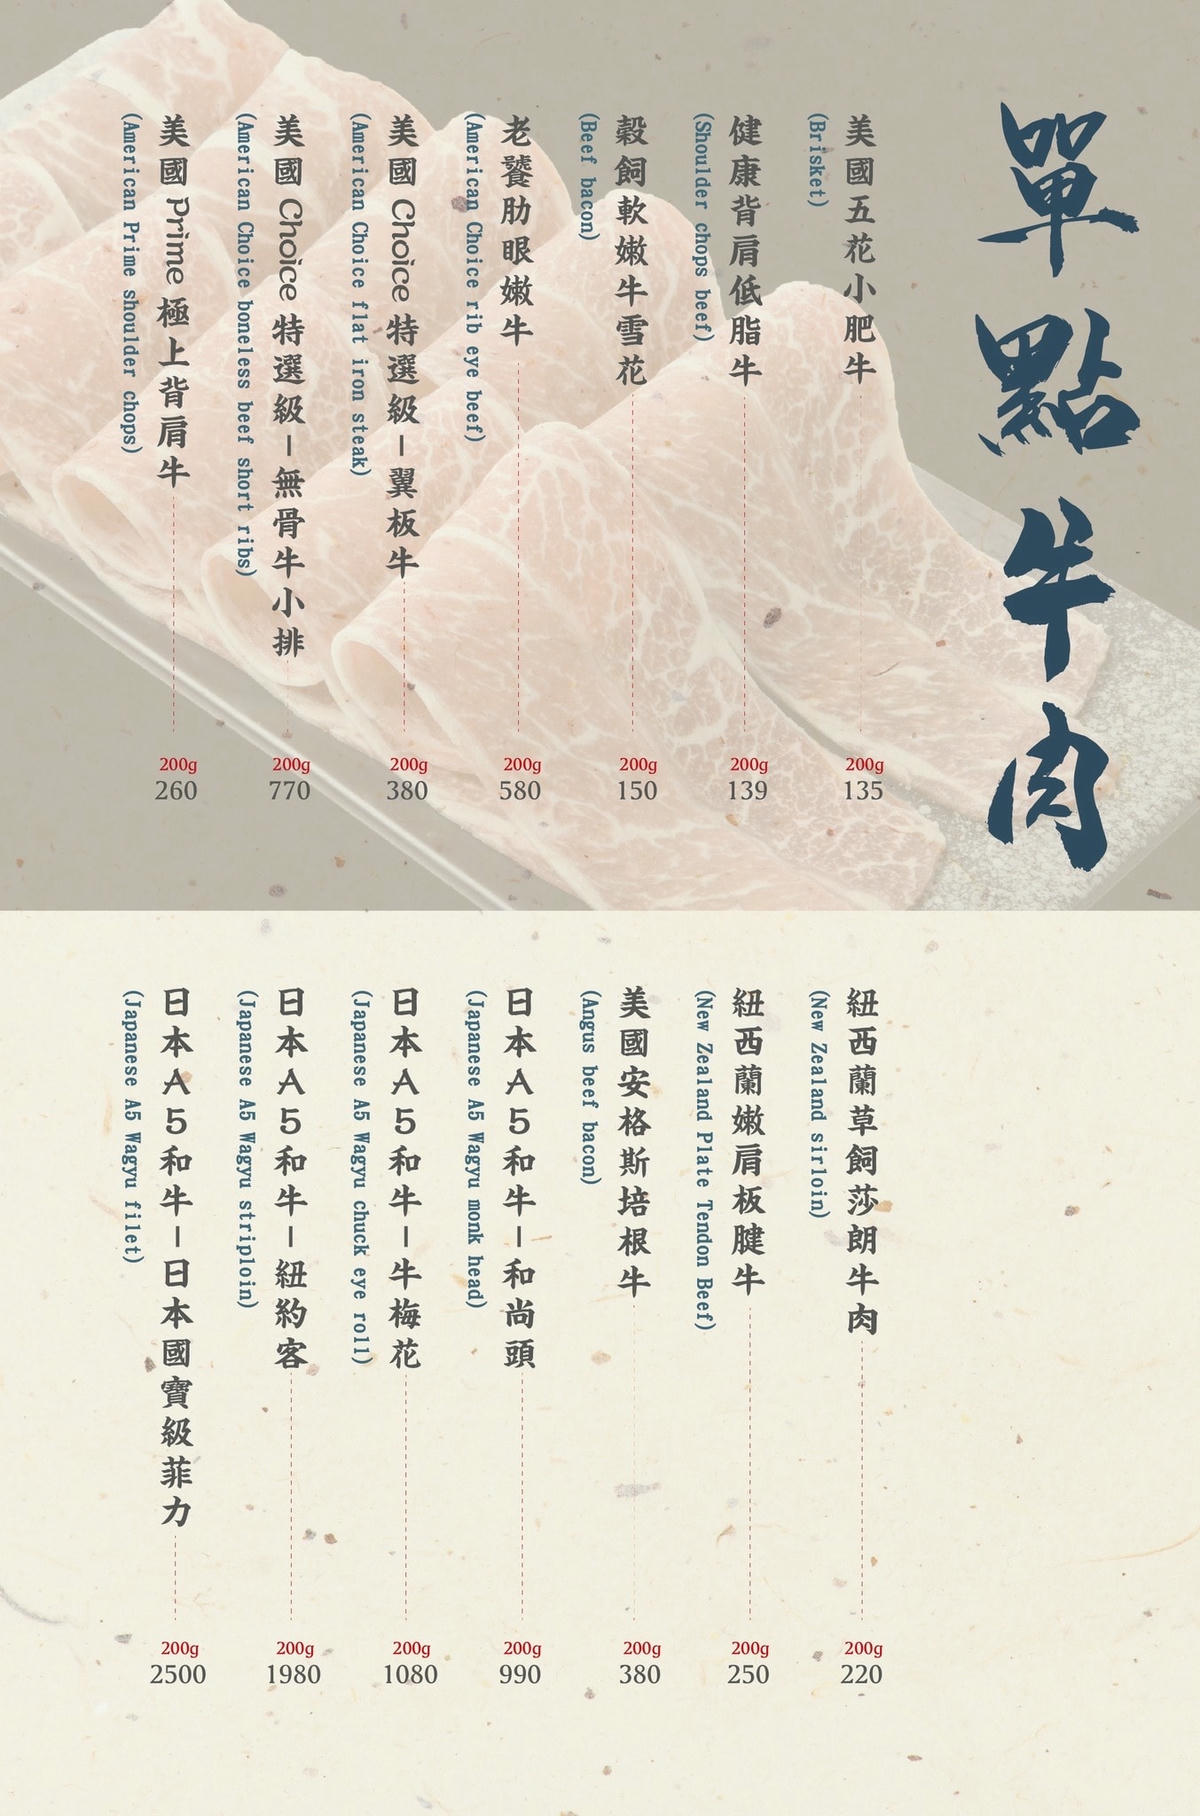 單點牛肉
美國五花小肥牛
(Brisket)
200g
135
健康背肩低脂牛
(Shoulder chops beef)
200g
139
穀飼軟嫩牛雪花
(Beef bacon)
200g
150
老饕肋眼嫩牛
(American Choice rib eye beef)
200g
580
美國Choice特選級–翼板牛
(American Choice flat iron steak)
200g
380
美國Choice特選級–無骨牛小排
(American Choice boneless beef short ribs)
200g
770
美國Prime極上背肩牛
(American Prime shoulder chops)
200g
260
紐西蘭草飼莎朗牛肉
(New Zealand sirloin)
200g
220
紐西蘭嫩肩板腱牛
(New Zealand Plate Tendon Beef)
200g
250
美國安格斯培根牛
(Angus beef bacon)
200g
380
日本A5和牛–和尚頭
(Japanese A5 Wagyu monk head)
200g
990
日本A5和牛–牛梅花
(Japanese A5 Wagyu chuck eye roll)
200g
1080
日本A5和牛–紐約客
(Japanese A5 Wagyu striploin)
200g
1980
日本A5和牛–日本國寶級菲力
(Japanese A5 Wagyu filet)
200g
2500